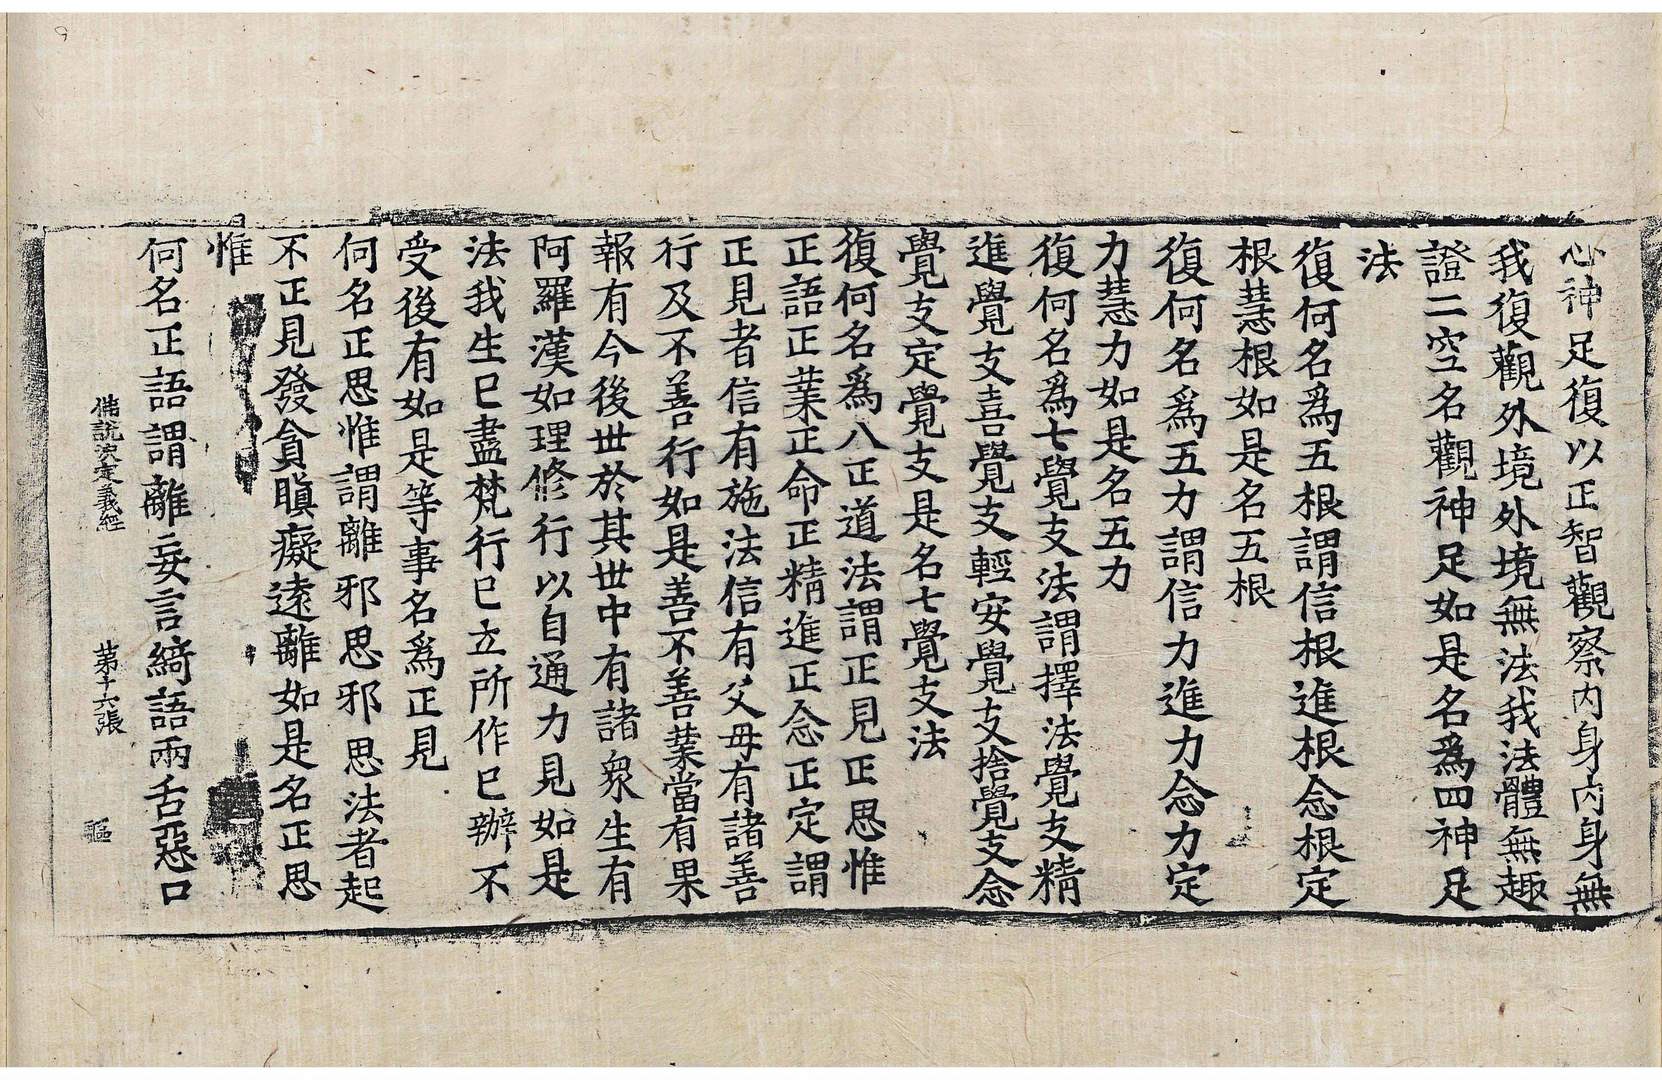 心神足復以正智觀察內身內身無
我復觀外境外境無法我法體無趣
證二空名觀神足如是名爲四神足
法
復何名爲五根謂信根進根念根定
根慧根如是名五根
復何名爲五力謂信力進力念力定
力慧力如是名五力
復何名爲七覺支法謂擇法覺支精
進覺支喜覺支輕安覺支捨覺支念
覺支定覺支是名七覺支法
復何名爲八正道法謂正見正思惟
正語正業正命正精進正念正定謂
正見者信有施法信有父母有諸善
行及不善行如是善不善業當有果
報有今後世於其世中有諸衆生有
阿羅漢如理修行以自通力見如是
法我生已盡梵行已立所作已辦不
受後有如是等事名爲正見
何名正思惟謂離邪思邪思法者起
不正見發貪瞋癡遠離如是名正思
惟
何名正語謂離妄言綺語兩舌惡口
佛說決定義經 第十六張